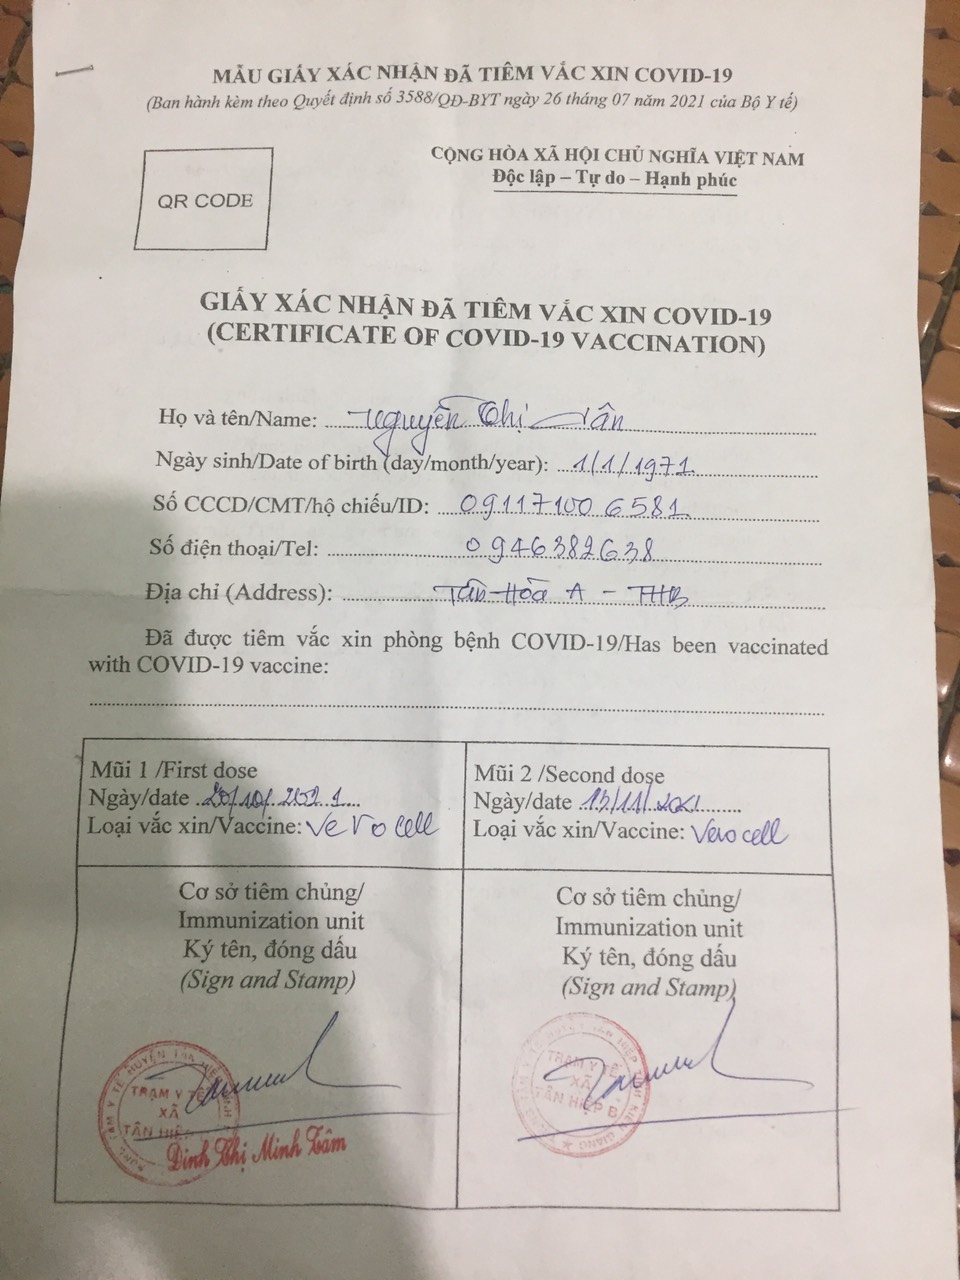 MẪU GIẤY XÁC NHẬN ĐÃ TIÊM VẮC XIN COVID-19
(Ban hành kèm theo Quyết định số 3588/QĐ-BYT ngày 26 tháng 07 năm 2021 của Bộ Y tế)
QR CODE
CỘNG HÒA XÃ HỘI CHỦ NGHĨA VIỆT NAM
Độc lập – Tự do – Hạnh phúc
GIẤY XÁC NHẬN ĐÃ TIÊM VẮC XIN COVID-19
(CERTIFICATE OF COVID-19 VACCINATION)
Họ và tên/Name: Nguyễn Thị Vân
Ngày sinh/Date of birth (day/month/year): 1/1/1971
Số CCCD/CMT/hộ chiếu/ID: 091171006581
Số điện thoại/Tel: 0946382638
Địa chỉ (Address): Tân Hòa A - THB
Đã được tiêm vắc xin phòng bệnh COVID-19/Has been vaccinated
with COVID-19 vaccine:
Mũi 1 /First dose
Ngày/date 20/10/2021
Loại vắc xin/Vaccine: Vero cell
Cơ sở tiêm chủng/
Immunization unit
Ký tên, đóng dấu
(Sign and Stamp)
TRẠM Y TẾ
XÃ
TÂN HIỆP
Đinh Thị Minh Tâm
Mũi 2 /Second dose
Ngày/date 13/11/2021
Loại vắc xin/Vaccine: Vero cell
Cơ sở tiêm chủng/
Immunization unit
Ký tên, đóng dấu
(Sign and Stamp)
TRẠM Y TẾ
XÃ
TÂN HIỆP B